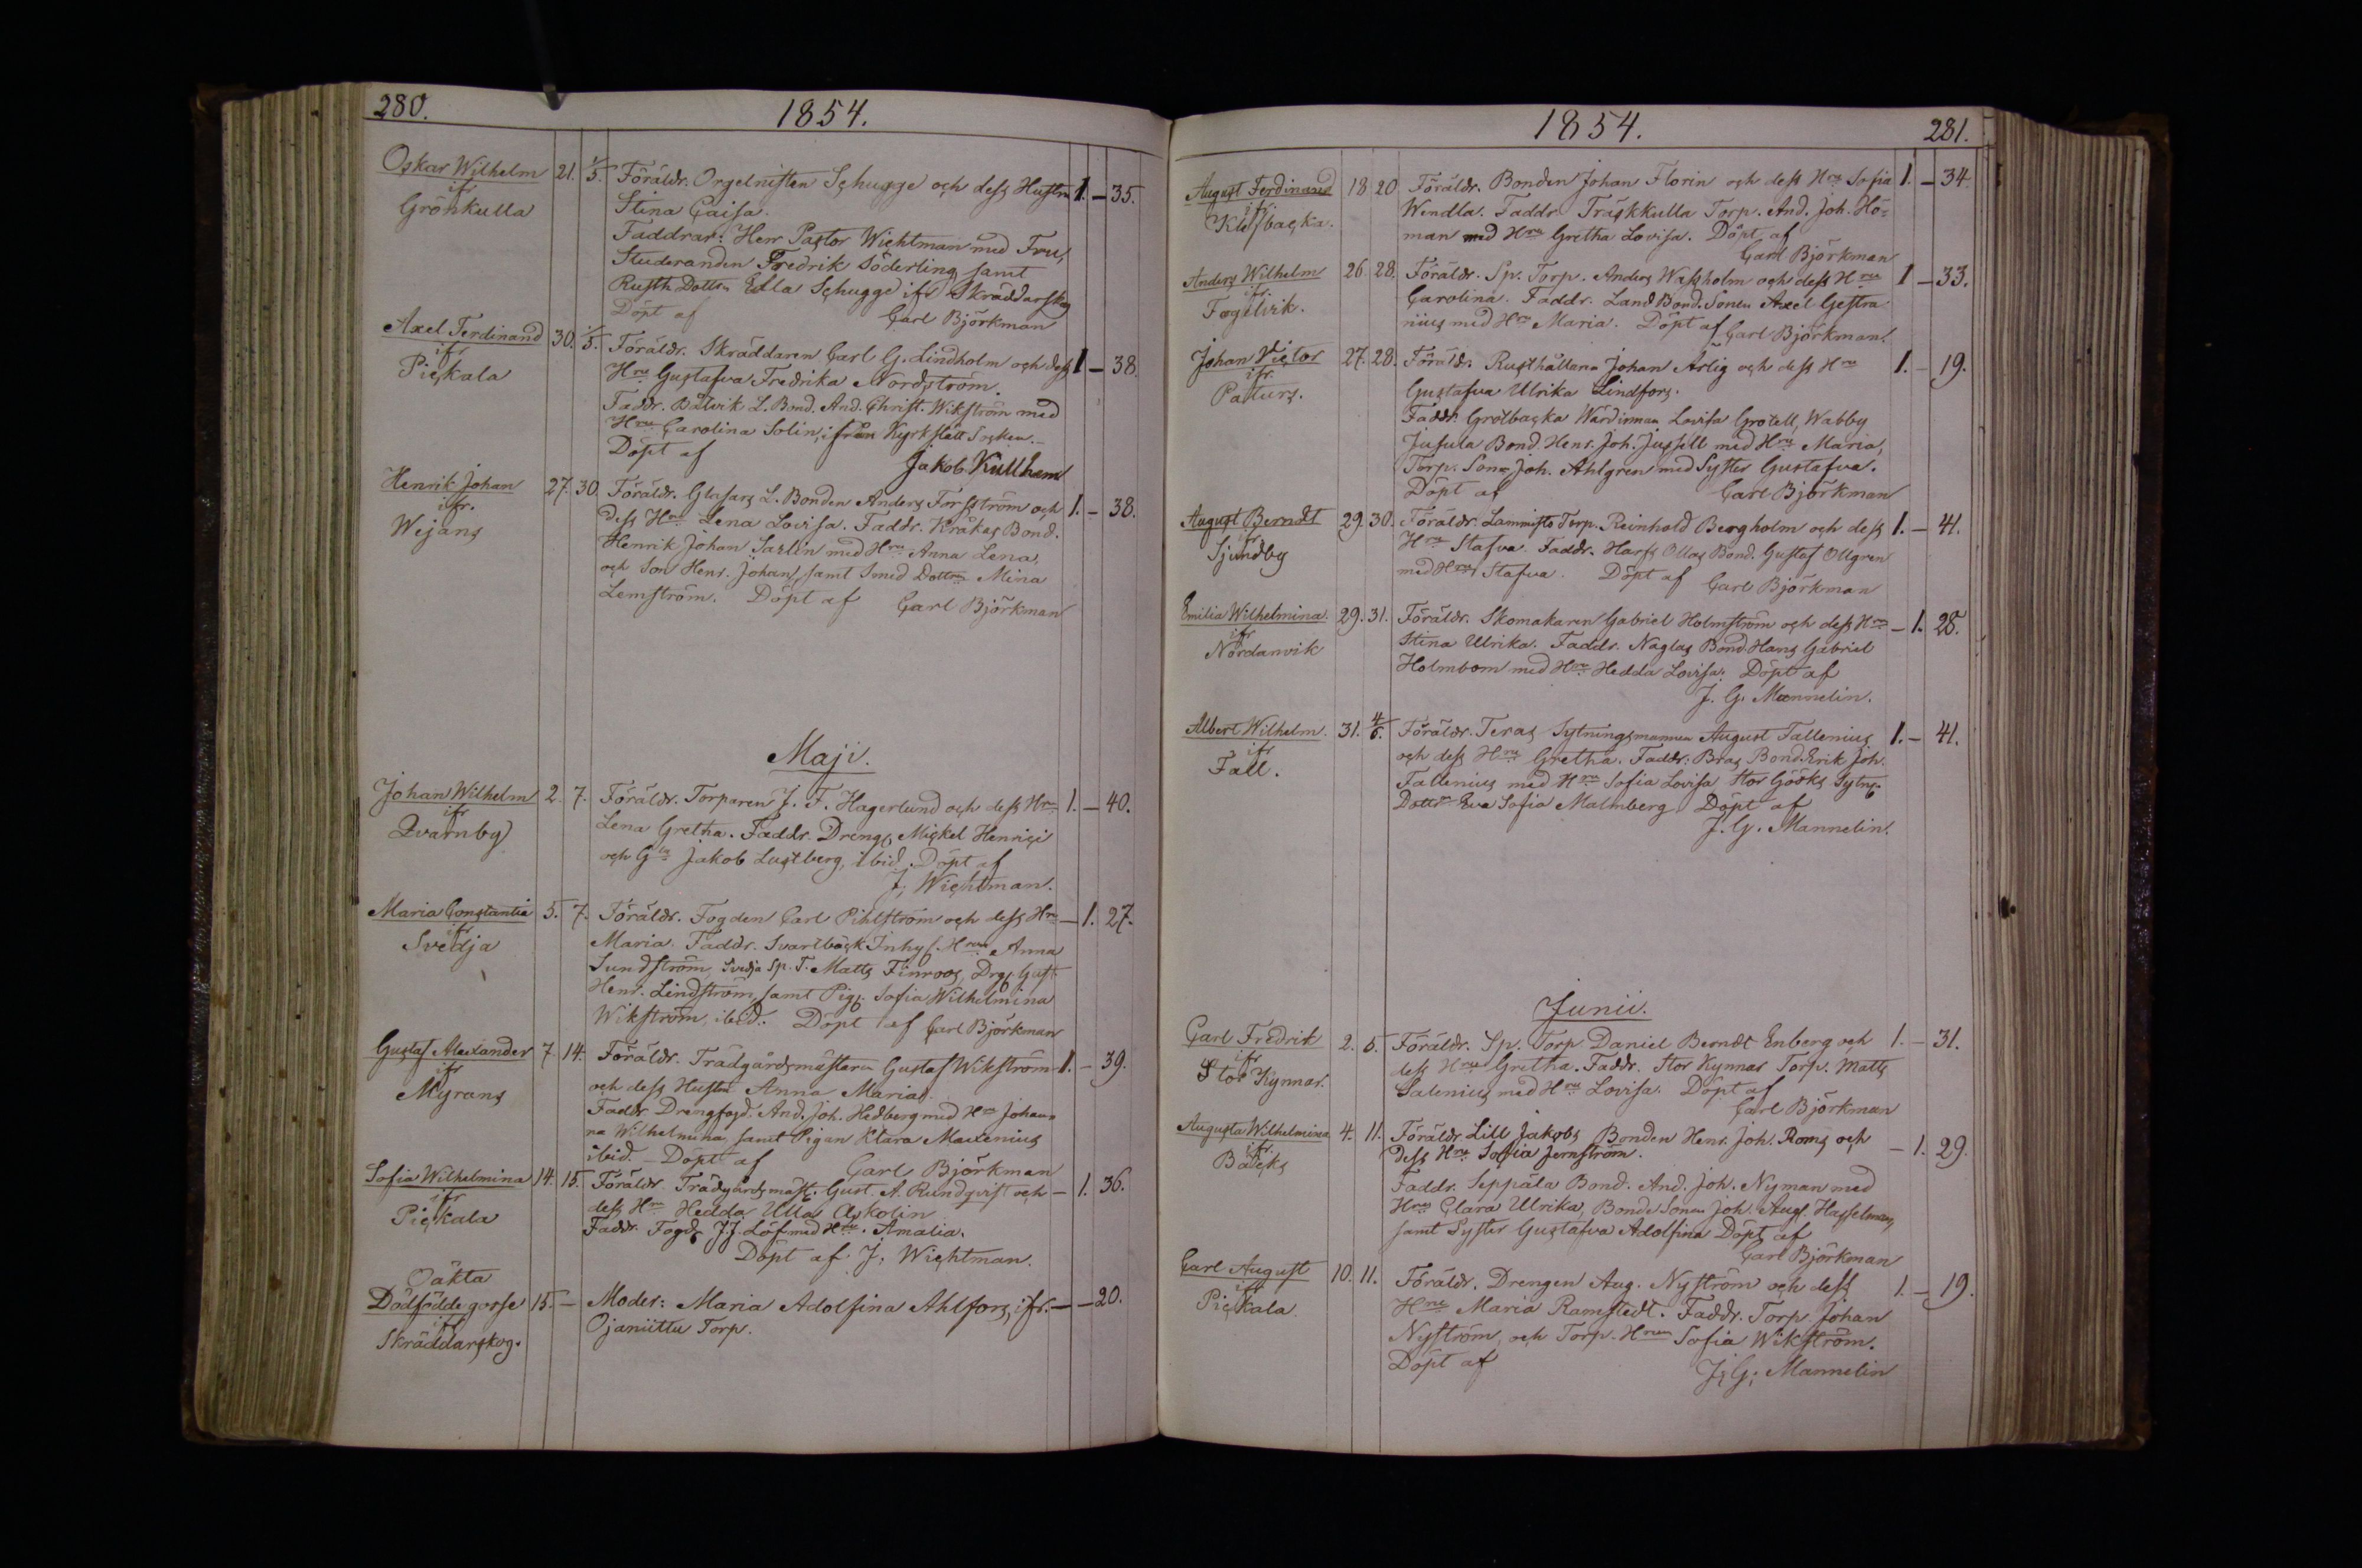 280.
1854.
Oskar Wilhelm 21. 1/5. Föräldr. Orgelnisten Schugge och dess Hustru 1. – 35.
ifr
Grönkulla
Stina Caisa.
Faddrar: Herr Pastor Wichtman med Fru,
Studeranden Fredrik Söderling samt
Rusth. Dottrn Ulla Schugge ifr Skräddarskog
Döpt af Carl Björkman
Axel Ferdinand 30. 1/5. Föräldr. Skräddaren Carl G. Lindholm och dess 1 – 38.
ifr
Pickala
Hru Gustafva Fredrika Nordström.
Faddr. Båtvik L. Bond. And. Christ. Wikström med
Hru Carolina Solin, ifrån Kyrkslätt Socken. –
Döpt af Jakob Kullhem
Henrik Johan 27. 30. Föräldr. Glasars L. Bonden Anders Forsström och 1. – 38.
ifr.
Wejans
dess Hru Lena Lovisa. Faddr. Kråkas Bond.
Henrik Johan Sarlin med Hru Anna Lena,
och Son Henr. Johan, samt Smed Dottrn Mina
Lemström. Döpt af Carl Björkman
Maji.
Johan Wilhelm 2. 7. Föräldr. Torparen J. F. Hagerlund och dess Hru 1. – 40.
ifr
Qvarnby
Lena Gretha. Faddr. Dreng. Mickel Henrici
och Gla Jakob Lustberg, ibid. Döpt af
J. Wichtman.
Maria Constantia 5. 7. Föräldr. Fogden Carl Pihlström och dess Hru – 1. 27.
ifr
Svedja
Maria. Faddr. Svartbäck Inhys. Hrun Anna
Sundström, Svedja Sp. T. Matts Finroos, Drg. Gust.
Henr. Lindström, samt Pig. Sofia Wilhelmina
Wikström, ibid. Döpt af Carl Björkman
Gustaf Alexander 7. 14. Föräldr. Trädgårdsmästaren Gustaf Wikström 1. – 39.
ifr
Myrans
och dess Hustru Anna Maria.
Faddr. Drengfogd. And. Joh. Hedberg med Hru Johan=
na Wilhelmina, samt Pigan Klara Maxenius
ibid. – Döpt af Carl Björkman
Sofia Wilhelmina 14. 15. Föräldr. Trädgårdsmäst. Gust. A. Rundqvist och – 1. 36.
ifr
Pickala
dess Hru Hedda Ulla Askolin
Faddr. Fogd. J. J. Löf med Hru Amalia.
Döpt af J. Wichtman.
Oäkta
Dödfödde gosse 15. – Moder: Maria Adolfina Ahlfors, ifr. – – 20.
ifr
Skräddarskog.
Ojaniittu Torp.
1854.
281.
August Ferdinand 18 20 Föräldr. Bonden Johan Florin och dess Hru Sofia 1. – 34.
ifr.
Klefbacka.
Wendla. Faddr. Träskkulla Torp. And. Joh. Hö=
man med Hru Gretha Lovisa. Döpt af
Carl Björkman
Anders Wilhelm 26. 28. Föräldr. Sp. Torp. Anders Wassholm och dess Hru 1 – 33.
ifr.
Fogelvik.
Carolina. Faddr. Land Bond. Sonen Axel Gestra
nius med Hru Maria. Döpt af Carl Björkman.
Johan Victor 27. 28. Föräldr. Rusthållaren Johan Ärlig och dess Hru 1. – 19.
ifr.
Paturs.
Gustafva Ulrika Lindfors.
Faddr. Grotbacka Wärdinnan Lovisa Grotell, Wabby
Jusula Bond. Henr. Joh. Jusell med Hru Maria,
Torp. Son Joh. Ahlgren med Syster Gustafva.
Döpt af Carl Björkman
August Berndt 29. 30. Föräldr. Lammisto Torp. Reinhold Bergholm och dess 1. – 41.
ifr
Sjundby
Hru Stafva. Faddr. Harfs Ollas Bond. Gustaf Ollgren
med Hru Stafva. Döpt af Carl Björkman
Emilia Wilhelmina. 29. 31. Föräldr. Skomakaren Gabriel Holmström och dess Hru – 1. 28.
ifr
Nordanvik
Stina Ulrika. Faddr. Naglas Bond. Hans Gabriel
Holmbom med Hru Hedda Lovisa. Döpt af
J. G. Mannelin.
Albert Wilhelm. 31. 4/6. Föräldr. Teras Sytningsmannen August Tallenius 1. – 41.
ifr
Fall.
och dess Hru Gretha. Faddr. Bras Bond. Erik Joh.
Tallenius med Hru Sofia Lovisa Stor Gööks Sytng.
Dottrn Eva Sofia Malmberg Döpt af
J. G. Mannelin.
Junii.
Carl Fredrik 2. 5. Föräldr. Sp. Torp Daniel Berndt Enberg och 1. – 31.
ifr
Stor Kynnar.
dess Hru Gretha. Faddr. Stor Kynnar Torp. Matts
Salenius med Hru Lovisa. Döpt af
Carl Björkman
Augusta Wilhelmina 4. 11. Föräldr. Lill Jakobs Bonden Henr. Joh. Roms och – 1. 29.
ifr.
Bäcks
dess Hru Sofia Jernström.
Faddr. Seppälä Bond. And. Joh. Nyman med
Hru Clara Ulrika, Bonde Sonen Joh. Aug. Hasselman,
samt Syster Gustafva Adolfina Döpt af
Carl Björkman
Carl August 10. 11. Föräldr. Drengen Aug. Nyström och dess 1. – 19.
ifr
Pickala.
Hru Maria Ramstedt. Faddr. Torp. Johan
Nyström, och Torp. Hrun Sofia Wikström.
Döpt af J. G. Mannelin